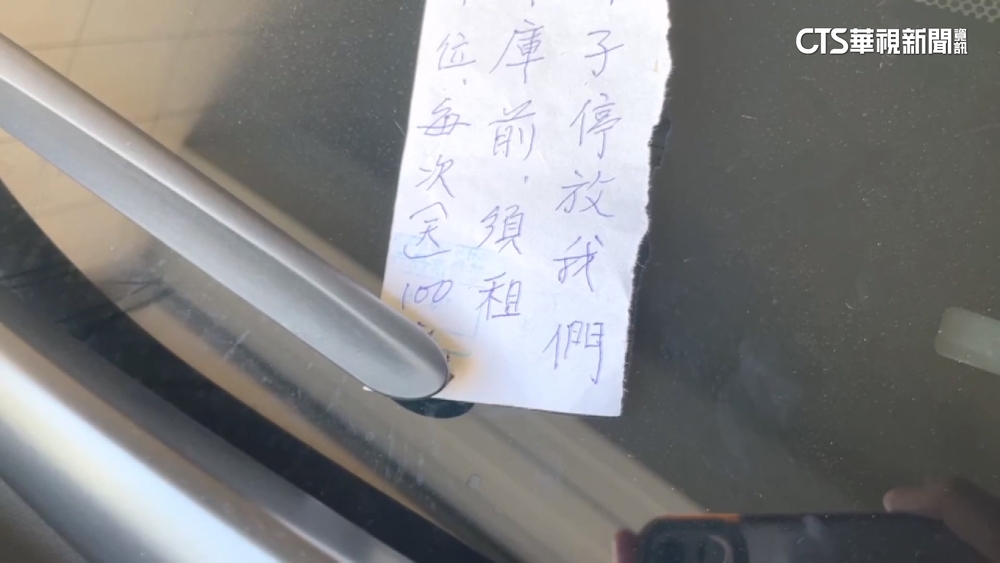 CTS華視新聞資訊
子停放我們
庫前，須租
位，每次(天)100